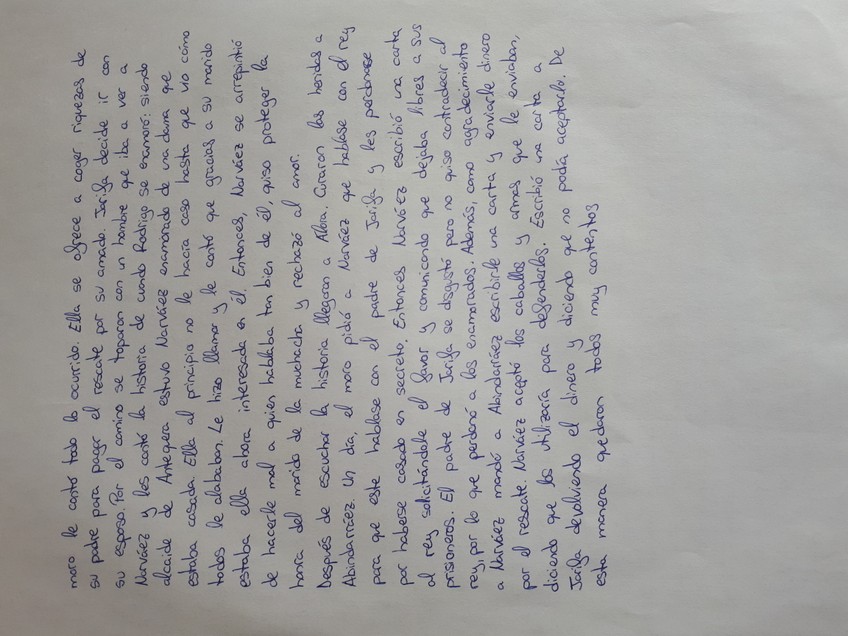 moro le contó todo lo ocurrido. Ella se ofrece a coger riquezas de
su padre para pagar el rescate por su amado. Jarifa decide ir con
su esposo. Por el camino se toparon con un hombre que iba a ver a
Narváez y les contó la historia de cuando Rodrigo se enamoró: siendo
alcaide de Antequera estuvo Narváez enamorado de una dama que
estaba casada. Ella al principio no le hacía caso hasta que vio cómo
todos le alababan. Le hizo llamar y le contó que gracias a su marido
estaba ella ahora interesada en él. Entonces, Narváez se arrepintió
de hacerle mal a quien hablaba tan bien de él, quiso proteger la
honra del marido de la muchacha y rechazó al amor.
Después de escuchar la historia llegaron a Álora. Curaron las heridas a
Abindarráez. Un día, el moro pidió a Narváez que hablase con el rey
para que este hablase con el padre de Jarifa y les perdonase
por haberse casado en secreto. Entonces Narváez escribió una carta
al rey solicitándole el favor y comunicando que dejaba libres a sus
prisioneros. El padre de Jarifa se disgustó pero no quiso contradecir al
rey, por lo que perdonó a los enamorados. Además, como agradecimiento
a Narváez mandó a Abindarráez escribirle una carta y enviarle dinero
por el rescate. Narváez aceptó los caballos y armas que le enviaban,
diciendo que los utilizaría para defenderlos. Escribió una carta a
Jarifa devolviendo el dinero y diciendo que no podía aceptarlo. De
esta manera quedaron todos muy contentos